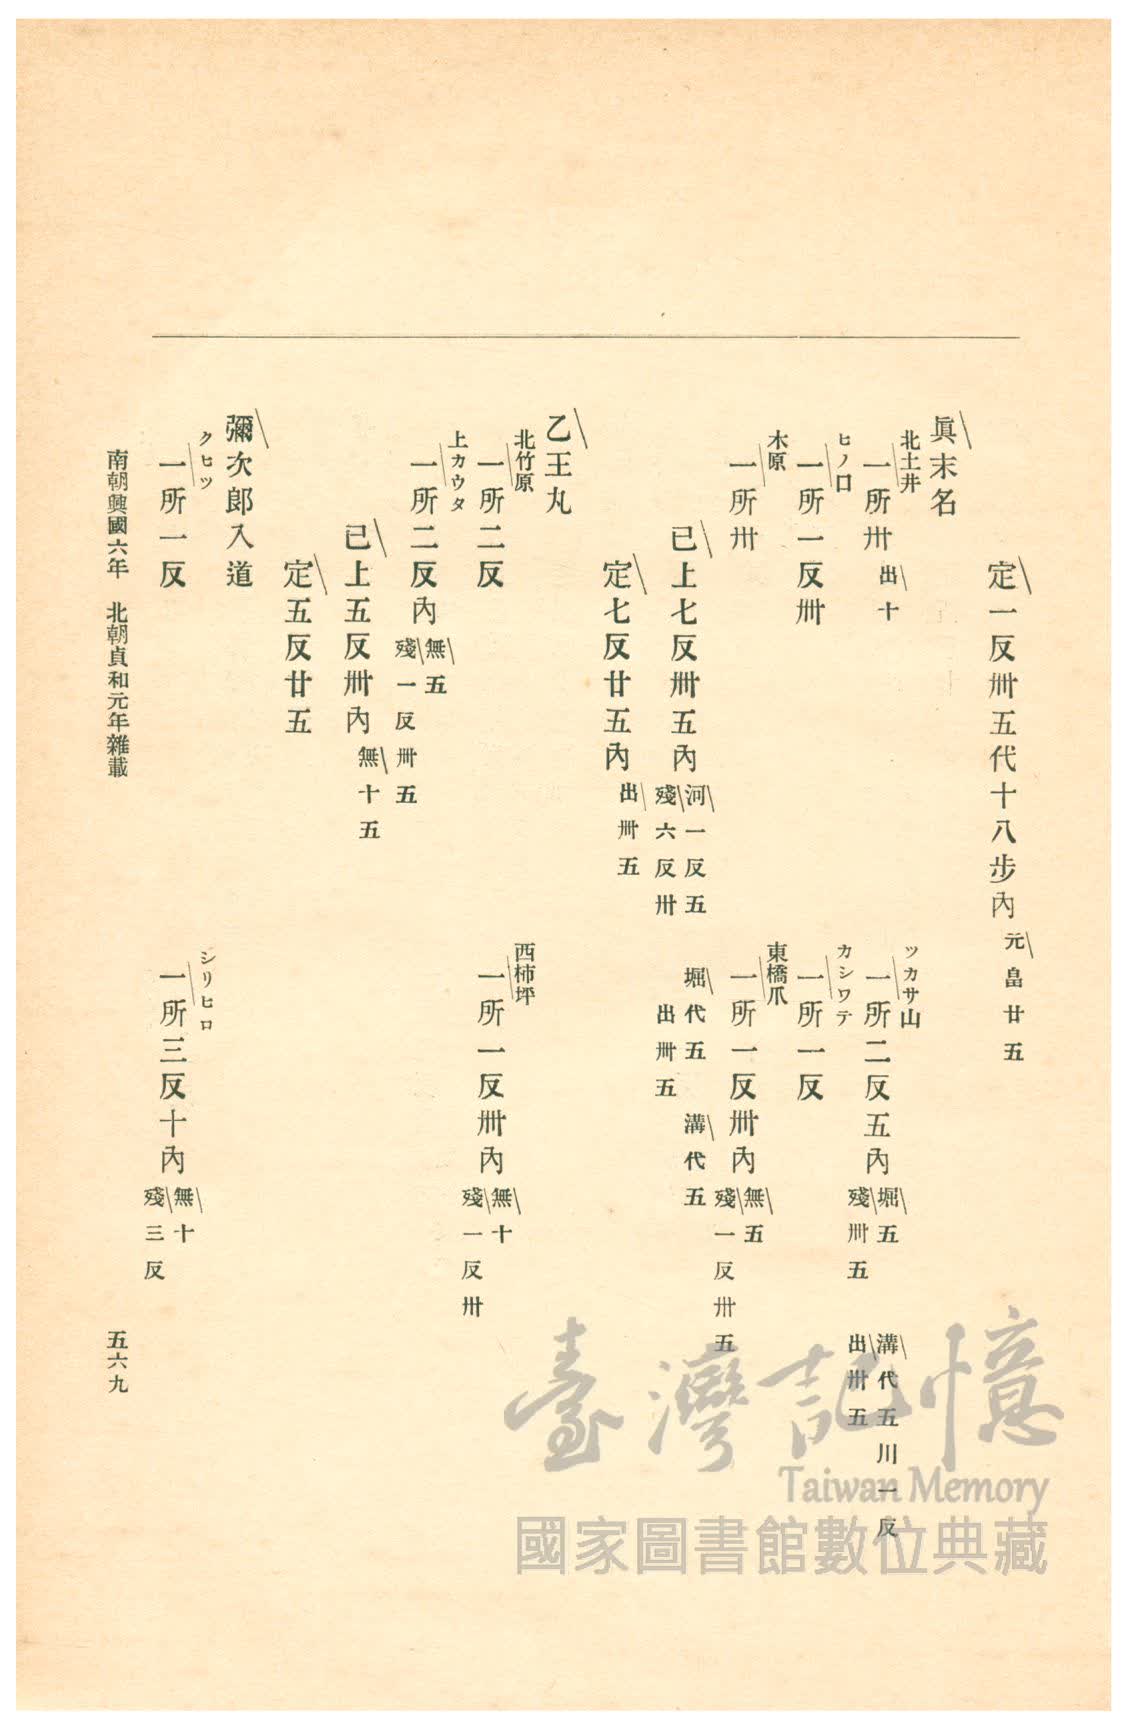 定一反卌五代十八步內 元畠廿五
眞末名
北土井 一所卅 出十
ツカサ山 一所二反五內 堀五 殘卌五 溝代五川一反 出卌五
ヒノ口 一所一反卅
カシワテ 一所一反
木原 一所卅
東橋爪 一所一反卌內 無五 殘一反卅五
已上七反卌五內 河一反五 殘六反卌 堀代五 出卌五 溝代五
定七反廿五內 出卌五
乙王丸
北竹原 一所二反
西柿坪 一所一反卌內 無十 殘一反卅
上カウタ 一所二反內 無五 殘一反卌五
已上五反卌內 無十五
定五反廿五
彌次郎入道
クヒツ 一所一反
シリヒロ 一所三反十內 無十 殘三反
南朝興國六年 北朝貞和元年雜載
五六九
臺灣記憶
Taiwan Memory
國家圖書館數位典藏